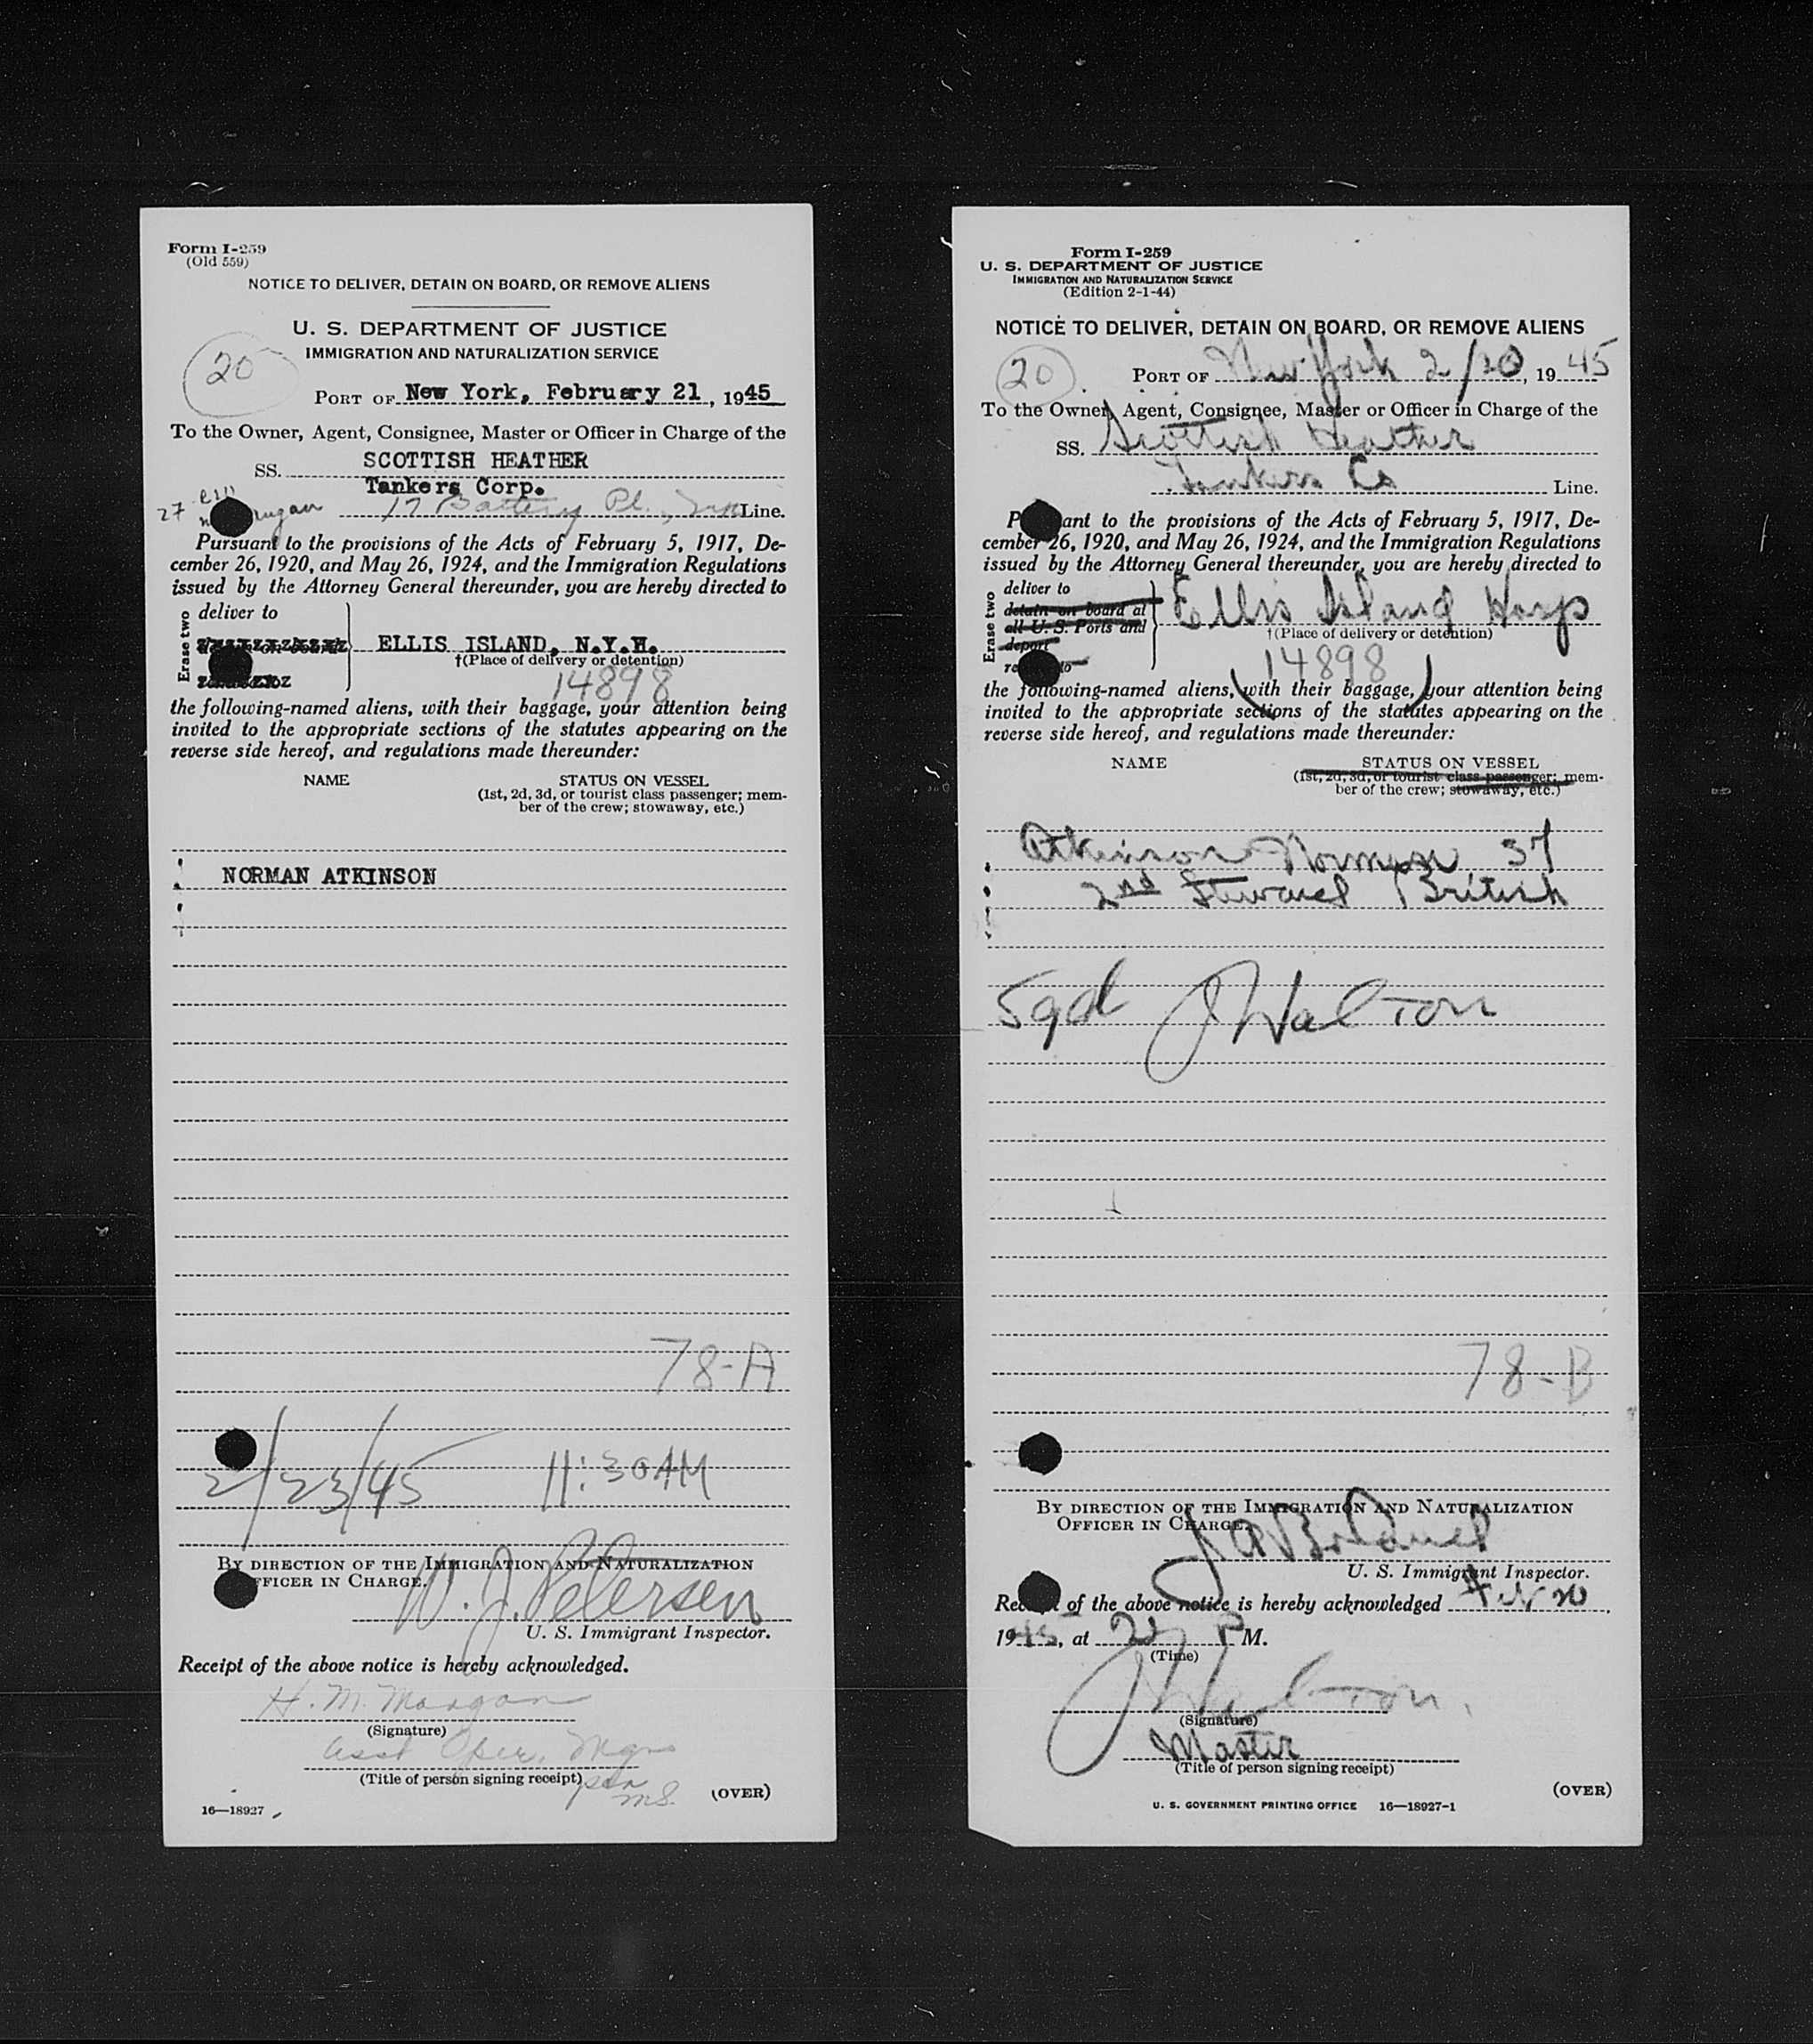 Form I-259
(Old 559)
NOTICE TO DELIVER, DETAIN ON BOARD, OR REMOVE ALIENS
U. S. DEPARTMENT OF JUSTICE
IMMIGRATION AND NATURALIZATION SERVICE
20
PORT OF New York, February 21, 1945
To the Owner, Agent, Consignee, Master or Officer in Charge of the
SS. SCOTTISH HEATHER
Tankers Corp.
27 17 Battery Pl., Line.
Pursuant to the provisions of the Acts of February 5, 1917, De-
cember 26, 1920, and May 26, 1924, and the Immigration Regulations
issued by the Attorney General thereunder, you are hereby directed to
Erase two
deliver to
ELLIS ISLAND, N.Y.H.
†(Place of delivery or detention)
14898
the following-named aliens, with their baggage, your attention being
invited to the appropriate sections of the statutes appearing on the
reverse side hereof, and regulations made thereunder:
NAME STATUS ON VESSEL
(1st, 2d, 3d, or tourist class passenger; mem-
ber of the crew; stowaway, etc.)
NORMAN ATKINSON
78-A
2/23/45 11:30 AM
BY DIRECTION OF THE IMMIGRATION AND NATURALIZATION
OFFICER IN CHARGE.
W. J. Petersen
U. S. Immigrant Inspector.
Receipt of the above notice is hereby acknowledged.
H. M. Morgan
(Signature)
Asst Oper. Mgr
(Title of person signing receipt)
(OVER)
16—18927
Form I-259
U. S. DEPARTMENT OF JUSTICE
IMMIGRATION AND NATURALIZATION SERVICE
(Edition 2-1-44)
NOTICE TO DELIVER, DETAIN ON BOARD, OR REMOVE ALIENS
20
PORT OF New York 2/20, 1945
To the Owner, Agent, Consignee, Master or Officer in Charge of the
SS. Scottish Heather
Tankers Co Line.
Pursuant to the provisions of the Acts of February 5, 1917, De-
cember 26, 1920, and May 26, 1924, and the Immigration Regulations
issued by the Attorney General thereunder, you are hereby directed to
Erase two
deliver to
detain on board at
all U. S. Ports and
deport
remove to
Ellis Island Hosp
†(Place of delivery or detention)
14898
the following-named aliens, (with their baggage,) your attention being
invited to the appropriate sections of the statutes appearing on the
reverse side hereof, and regulations made thereunder:
NAME STATUS ON VESSEL
(1st, 2d, 3d, or tourist class passenger; mem-
ber of the crew; stowaway, etc.)
Atkinson Norman 37
2nd Steward British
Sgd J Walton
78-B
BY DIRECTION OF THE IMMIGRATION AND NATURALIZATION
OFFICER IN CHARGE.
U. S. Immigrant Inspector.
Receipt of the above notice is hereby acknowledged Feb 20,
1945, at P M.
(Time)
J Walton
(Signature)
Master
(Title of person signing receipt)
(OVER)
U. S. GOVERNMENT PRINTING OFFICE 16—18927-1